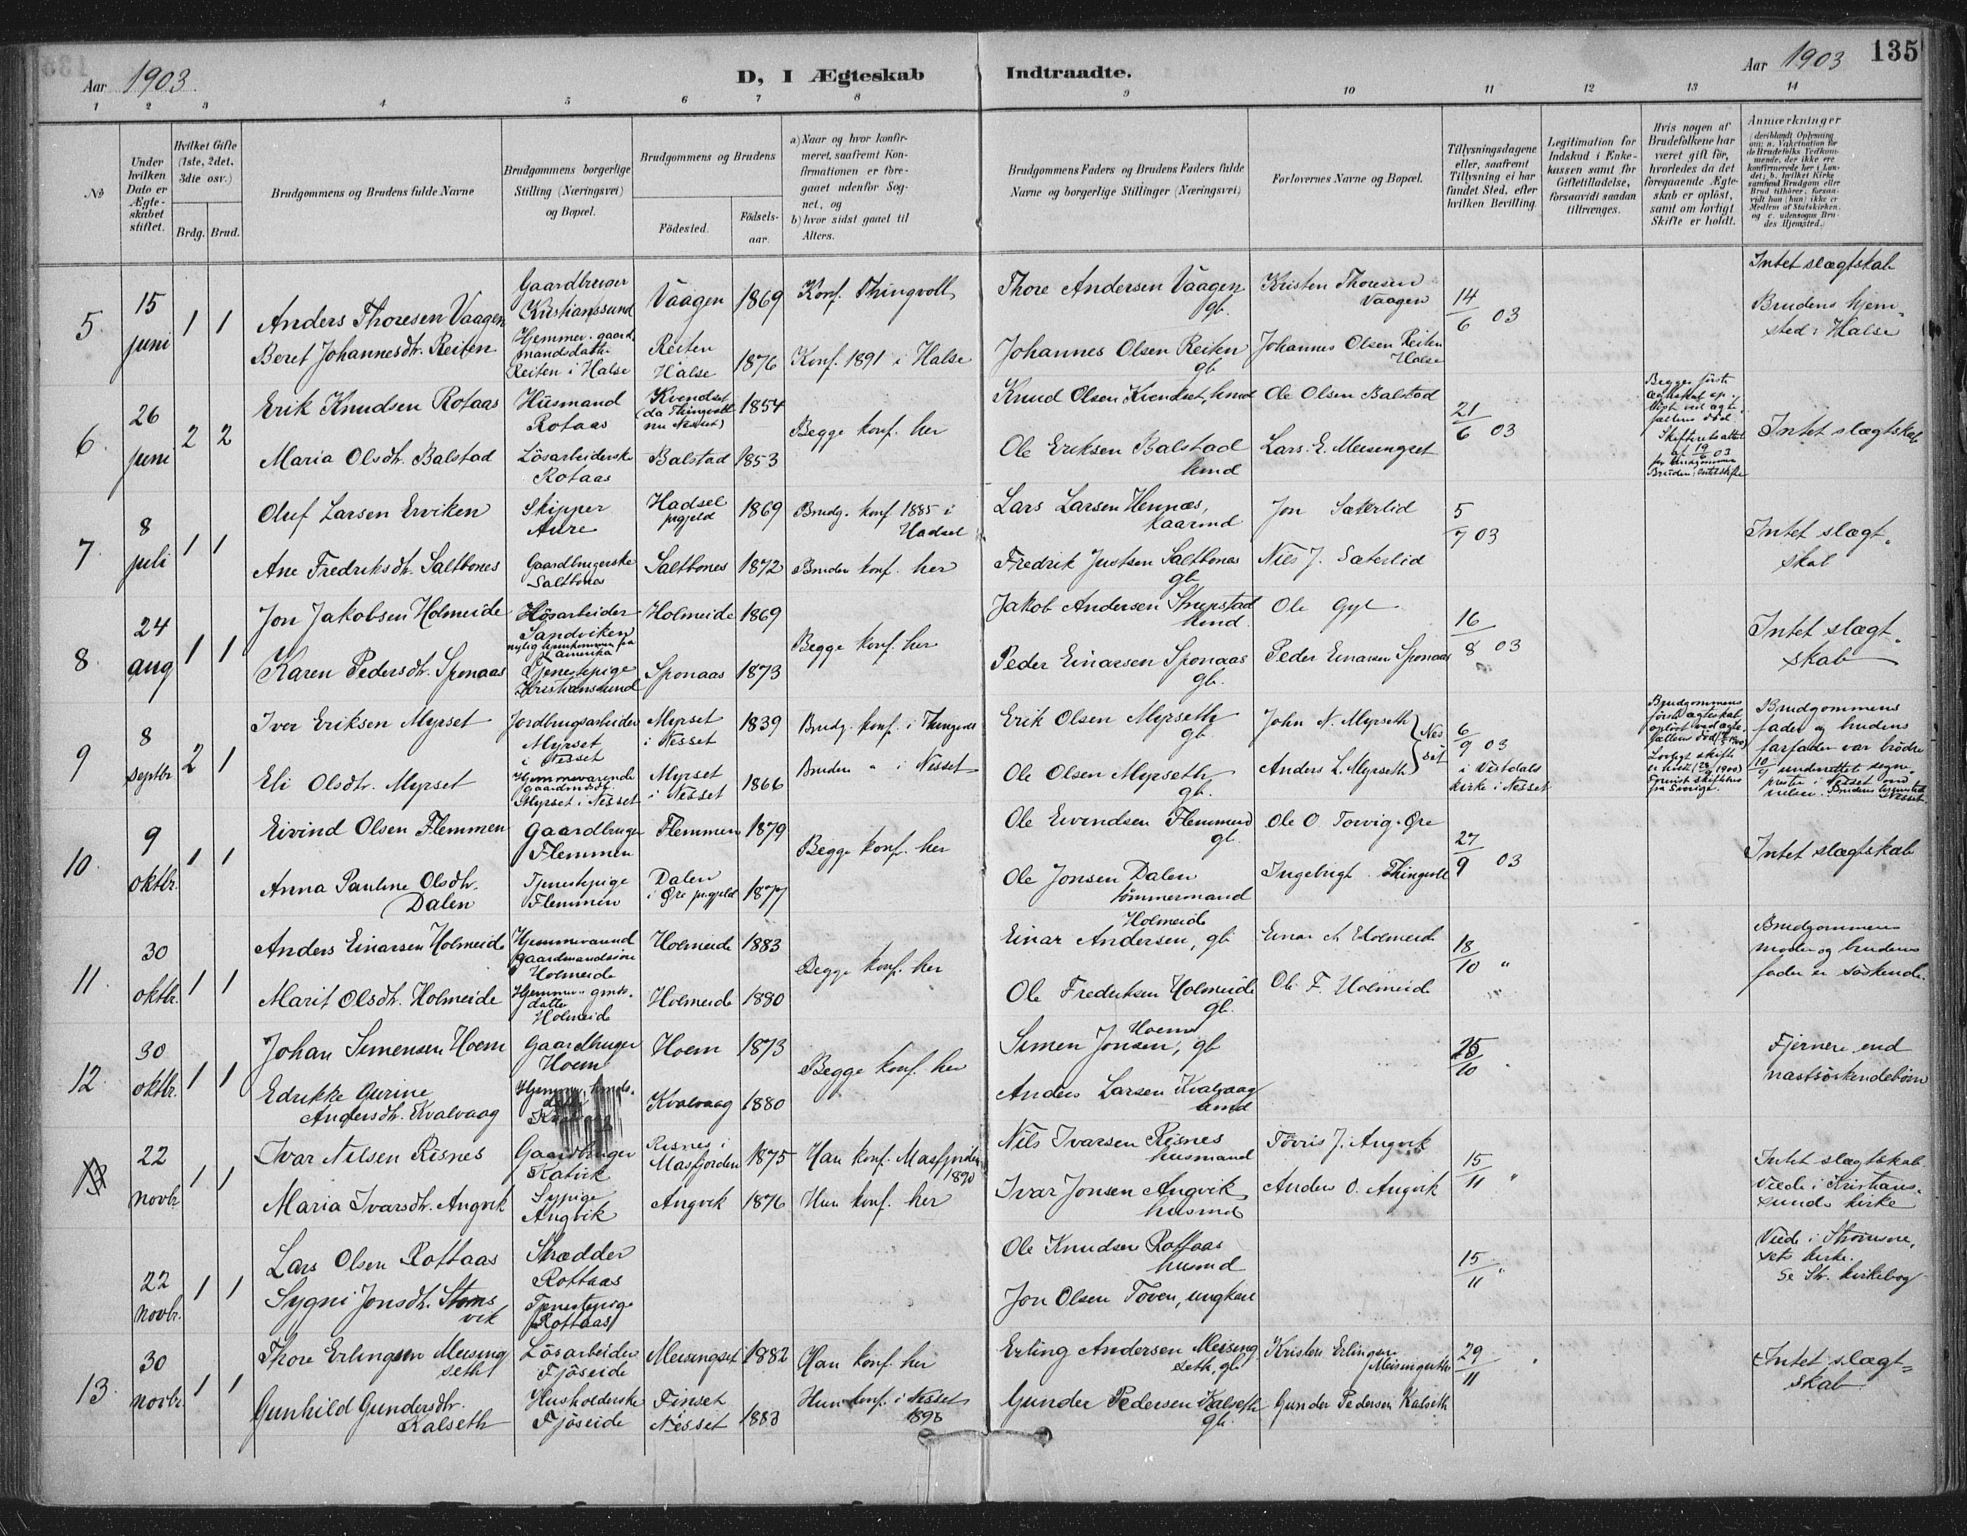 135
Aar 1903.
D, I Ægteskab Indtraadte.
Aar 1903
1 2 3 4 5 6 7 8 9 10 11 12 13 14
№
Under hvilken Dato er Ægteskabet stiftet.
Hvilket Gifte (1ste, 2det, 3die osv.)
Brdg. Brud.
Brudgommens og Brudens fulde Navne
Brudgommens borgerlige Stilling (Næringsvei) og Bopæl.
Brudgommens og Brudens
Fødested.
Fødselsaar.
a) Naar og hvor konfirmeret, saafremt Konfirmationen er foregaaet udenfor Sognet, og
b) hvor sidst gaaet til Alters.
Brudgommens Faders og Brudens Faders fulde Navne og borgerlige Stillinger (Næringsvei)
Forlovernes Navne og Bopæl.
Tillysningsdagene eller, saafremt Tillysning ei har fundet Sted, efter hvilken Bevilling.
Legitimation for Indskud i Enkekassen samt for Giftetilladelse, forsaavidt saadan tiltrænges.
Hvis nogen af Brudefolkene har været gift før, hvorledes da det foregaaende Ægteskab er opløst, samt om lovligt Skifte er holdt.
Anmærkninger
(deriblandt Oplysning om: a. Vakcination for de Brudefolks Vedkommende, der ikke ere konfirmerede her i Landet; b. hvilket Kirkesamfund Brudgom eller Brud tilhører, forsaavidt han (hun) ikke er Medlem af Statskirken, og c. udensogns Brudes Hjemsted.)
5
15 juni
1 1
Anders Thoresen Vaagen
Gaardbruger Kristianssund
Vaagen 1869
Konf. Thingvoll
Thore Andersen Vaagen gb.
Kristen Thoresen Vaagen
14/6 03
Intet slægtskab
Brudens hjemsted: Halse
Beret Johannesdtr. Reiten
Hjemmev. gaardmandsdatter Reiten i Halse
Reiten Halse 1876
Konf. 1891 i Halse
Johannes Olsen Reiten gb
Johannes Olsen Reiten Halse
6
26 juni
2 2
Erik Knudsen Rotaas
Husmand Rotaas
Kvendset (da Thingvoll nu Nesset) 1854
Begge konf. her
Knud Olsen Kvendset, hmd
Ole Olsen Balstad
21/6 03
Begges første ægteskab opløst ved ægtefællens død.
Skifteretsattest af 19/6 03 for brudgommen
Intet slægtskab
Maria Olsdtr. Balstad
Løsarbeiderske Rotaas
Balstad 1853
Ole Eriksen Balstad hmd
Lars E. Meisingset
7
8 juli
1 1
Oluf Larsen Erviken
Skipper Aure
Hadsel prgjeld 1869
Brudg. konf 1885 i Hadsel
Lars Larsen Hennæs, kaarmd
Jon Sæterlid
5/7 03
Intet slægtskab
Ane Fredriksdtr. Saltbones
Gaardbrugerske Saltbones
Saltbones 1872
Bruden konf. her
Fredrik Justsen Saltbones gb
Nils J. Sæterlid
8
24 aug
1 1
Jon Jakobsen Holmeide
Løsarbeider Sandviken
nylig hjemkommen fra Amerika
Holmeide 1869
Begge konf. her
Jakob Andersen Strupstad hmd.
Ole Gyl
16/8 03
Intet slægtskab
Karen Pedersdtr. Sponaas
Tjenestepige Kristianssund
Sponaas 1873
Peder Einarsen Sponaas gb.
Peder Einarsen Sponaas
9
8 septbr
2 1
Iver Eriksen Myrset
Jordbrugsarbeider Myrset i Nesset
Myrset i Nesset 1839
Brudg. konf. i Thingvoll
Erik Olsen Myrseth gb
John N. Myrseth
Nesset
6/9 03
i Vistdals kirke i Nesset
Brudgommens første ægteskab opløst ved ægtefællens død
Lovligt skifte er holdt
Brudgommens fader og brudens farfader var brødre
10/9 underrettet sogneprest i Nesset om vielsen. Brudens hjemsted Nesset.
Eli Olsdtr. Myrset
Hjemmeværende gaardmdsdtr. Myrset i Nesset
Myrset i Nesset 1866
Bruden " i Nesset
Ole Olsen Myrseth gb.
Anders L. Myrseth
10
9 oktbr.
1 1
Eivind Olsen Flemmen
Gaardbruger Flemmen
Flemmen 1879
Begge konf. her
Ole Eivendsen Flemmen gb.
Ole O Torvig. Øre
27/9 03
Intet slægtskab
Anna Pauline Olsdtr. Dalen
Tjenestepige Flemmen
Dalen i Øre prgjeld 1877
Ole Jonsen Dalen tømmermand
Ingebrigt Thingvoll
11
30 oktbr.
1 1
Anders Einarsen Holmeide
Hjemmeværend gaardmandssøn Holmeide
Holmeide 1883
Begge konf. her
Einar Andersen, gb Holmeide
Einar A Holmeide
18/10 "
Brudgommens moder og brudens fader er søskende.
Marit Olsdtr. Holmeide
Hjemmev. gmds. datter Holmeide
Holmeide 1880
Ole Fredriksen Holmeide gb.
Ole F. Holmeide
12
30 oktbr.
1 1
Johan Simensen Hoem
Gaardbruger Hoem
Hoem 1873
Begge konf. her
Simen Jonsen, gb Hoem
25/10 "
Fjernere end næstsøskendebørn
Edrikke Gurine Andersdtr. Kvalvaag
Hjemmev. hmds. datter
Kvalvaag 1880
Anders Larsen Kvalvaag hmd
13
22 novbr
1 1
Ivar Nilsen Risnes
Gaardbruger
Risnes i Masfjorden 1875
Han konf. Masfjorden 1890
Nils Ivarsen Risnes husmand
Torris J. Angvik
15/11 "
Intet slægtskab.
Viede i Kristianssunds kirke
Maria Ivarsdtr. Angvik
Sypige Angvik
Angvik 1876
Hun konf. her
Ivar Jonsen Angvik husmd
Anders O. Angvik
22 novbr.
1 1
Lars Olsen Rottaas
Skrædder Rottaas
Ole Knudsen Rottaas husmd
15/11 "
Viede i Strømsnesets kirke.
Se Str. kirkebog
Sygni Jonsdtr. Stomsvik
Tjenestepige Rottaas
Jon Olsen Toven, ungkarl
13.
30 novbr
1 1
Thore Erlingsen Meisingseth
Løsarbeider Fjøseide
Meisingset 1882
Han konf. her
Erling Andersen Meisingseth, gb
Kristen Erlingsen Meisingseth
29/11 "
Intet slægtskab
Gunhild Gundersdtr. Kalseth
Husholderske Fjøseide
Finset Nesset 1883
Hun konf. i Nesset 1898
Gunder Pedersen Kalseth gb.
Gunder Pedersen Kalseth